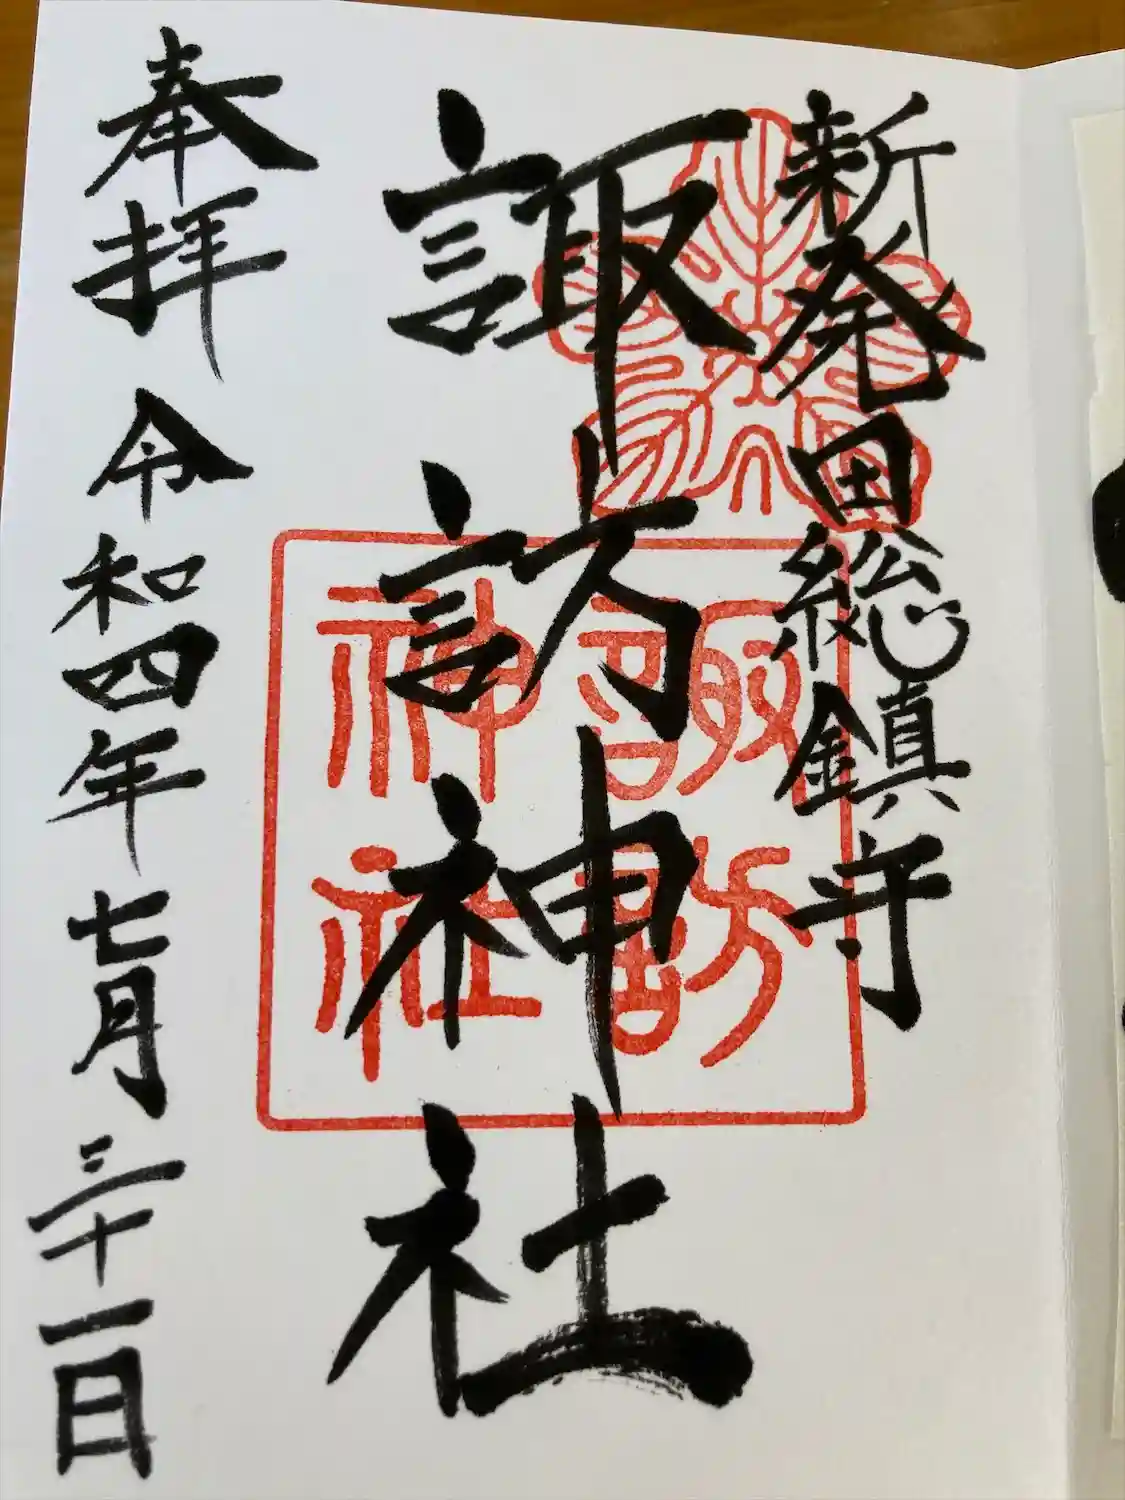 新発田総鎮守
諏訪神社
諏訪
神社
奉拝 令和四年七月三十一日